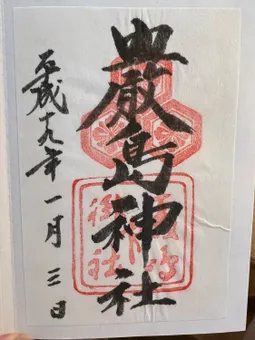 嚴島神社
平成十九年一月三日